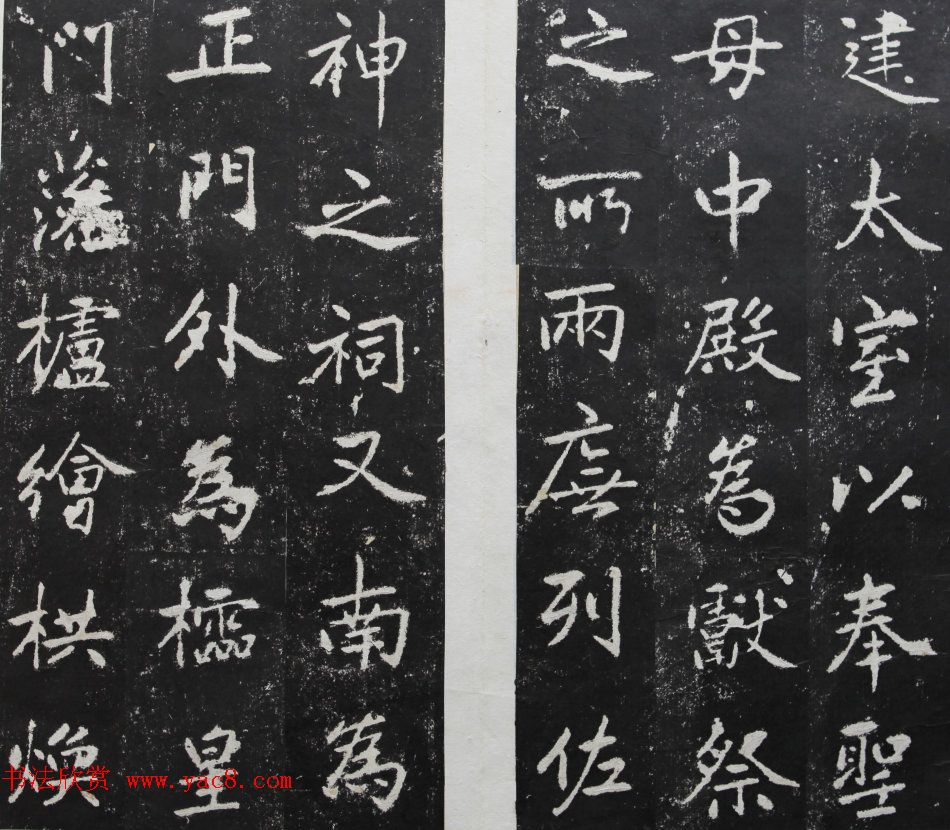 建太室以奉聖
母中殿為獻祭
之所兩廡列佐
神之祠又南為
正門外為櫺星
門藩櫨繪栱煥
书法欣赏 www.yac8.com